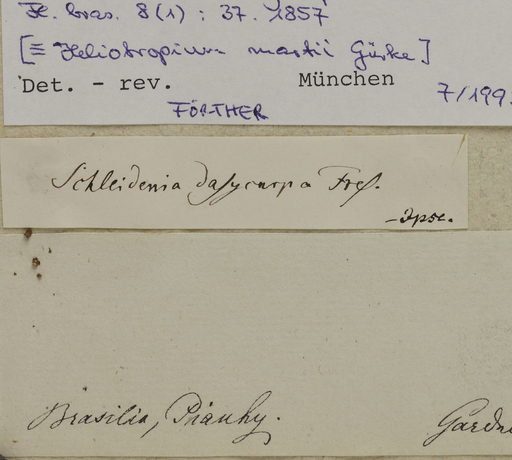 Fl. bras. 8(1) : 37. 1857
[≡ Heliotropium martii Gürke]
Det. - rev. München 7/199
FÖRTHER
Schleidenia dasycarpa Fres.
- Ipse.
Brasilia, Piauhy. Gardne